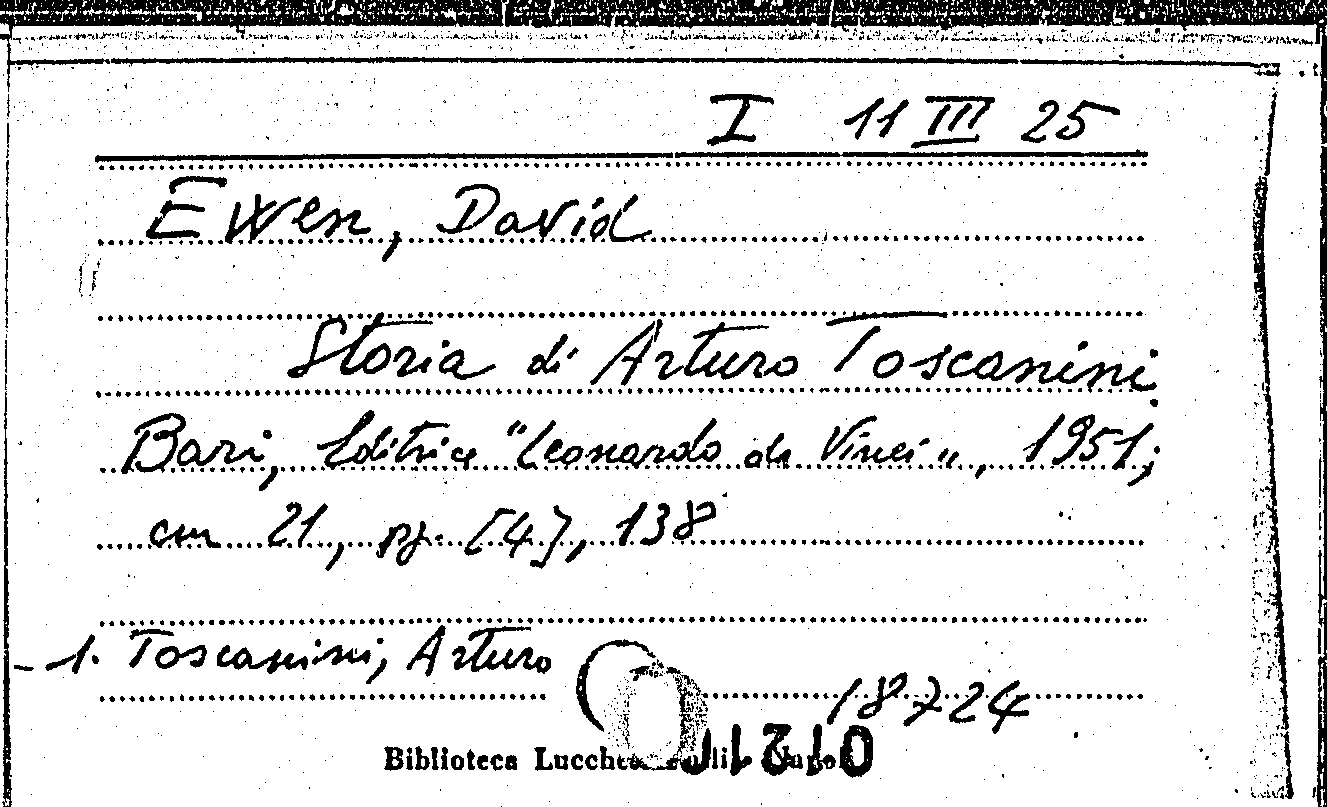 I 11 III 25
Ewen, David
Storia di Arturo Toscanini
Bari, Editrice "Leonardo da Vinci", 1951;
cm 21, pg. [4], 138
- 1. Toscanini, Arturo
18724
Biblioteca